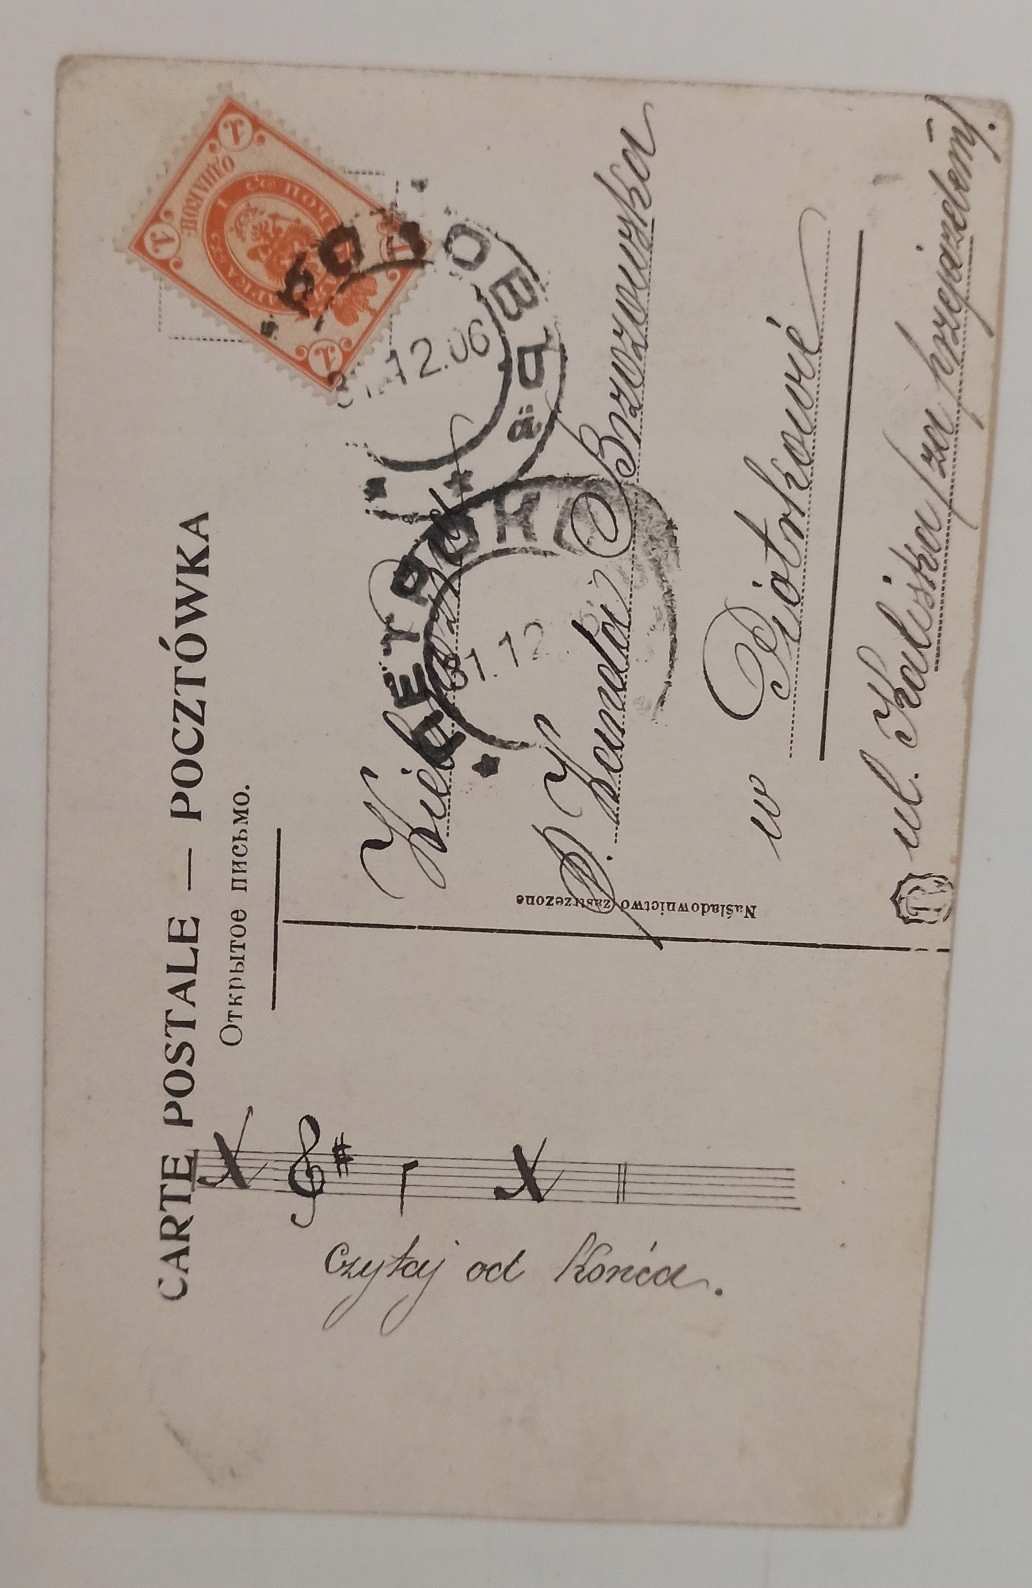 CARTE POSTALE — POCZTÓWKA
Открытое письмо.
Czytaj od Końca.
Naśladownictwo zastrzeżone
P. Brzozowska
w Piotrkowie
ul. Kaliska /za przejazdem/.
31.12.06
ПЕТРОК
31.12
1
1
1
1